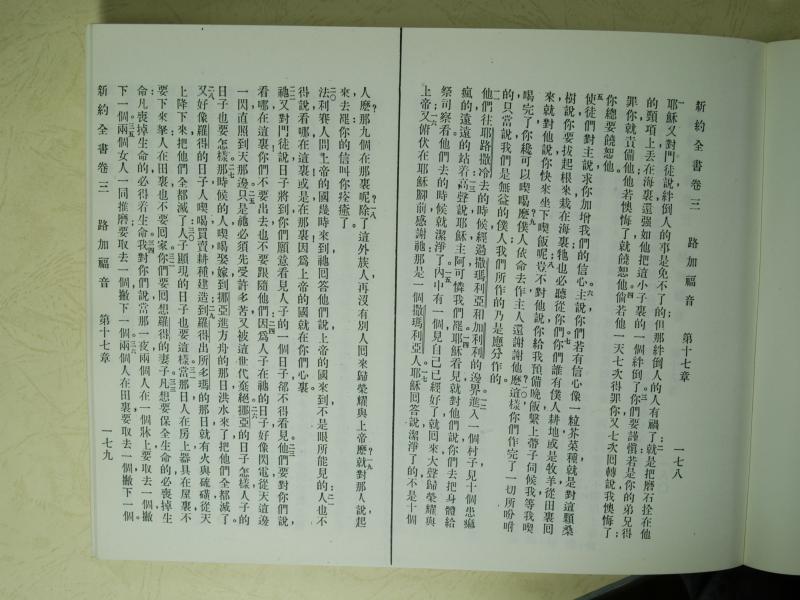 新約全書卷三　路加福音　第十七章　一七八
一耶穌又對門徒說絆倒人的事是免不了的但那絆倒人的人有禍了二就是把磨石拴在他
的頸項上丢在海裏還強如他把這小子裏的一個絆倒了三你們要謹慎若是你的弟兄得
罪你就責備他他若懊悔了就饒恕他四倘若他一天七次得罪你又七次回轉說我懊悔了
你總要饒恕他
五使徒們對主說求你加增我們的信心六主說你們若有信心像一粒芥菜種就是對這顆桑
樹說你要拔起根來栽在海裏牠也必聽從你們七你們誰有僕人耕地或是牧羊從田裏回
來就對他說你快來坐下喫飯呢八豈不對他說你給我預備晚飯繫上帶子伺候我等我喫
喝完了你纔可以喫喝麽九僕人依命去作主人還謝謝他麽十這樣你們作完了一切所吩咐
的只當說我們是無益的僕人我們所作的乃是應分作的
他們往耶路撒冷去的時候經過撒瑪利亞和加利利的邊界一二進入一個村子見十個患癩
瘋的遠遠的站着一三高聲說耶穌主阿可憐我們罷一四耶穌看見就對他們說你們去把身體給
祭司察看他們去的時候就潔淨了一五內中有一個見自己已經好了就回來大聲歸榮耀與
上帝一六又俯伏在耶穌腳前感謝祂那是一個撒瑪利亞人一七耶穌回答說潔淨了的不是十個
人麽那九個在那裏呢一八除了這外族人再沒有別人回來歸榮耀與上帝麽一九就對那人說起
來去罷你的信叫你痊癒了
二〇法利賽人問上帝的國幾時來到祂回答他們說上帝的國來到不是眼所能見的二一人也不
得說看哪在這裏或是在那裏因爲上帝的國就在你們心裏
二二祂又對門徒說日子將到你們願意看見人子的一個日子都不得看見二三他們要對你們說
看哪在這裏你們不要出去也不要跟隨他們二四因爲人子在祂的日子好像閃電從天這邊
一閃直照到天那邊二五只是祂必須先受許多苦又被這世代棄絕二六挪亞的日子怎樣人子的
日子也要怎樣二七那時候的人喫喝娶嫁到挪亞進方舟的那日洪水來了把他們全都滅了
二八又好像羅得的日子人喫喝買賣耕種建造二九到羅得出所多瑪的那日就有火與硫磺從天
上降下來把他們全都滅了三〇人子顯現的日子也要這樣三一當那日人在房上器具在屋裏不
要下來拏人在田裏也不要回家三二你們要回想羅得的妻子三三凡想要保全生命的必喪掉生
命凡喪掉生命的必得着生命三四我對你們說當那一夜兩個人在一個牀上要取去一個撇
下一個三五兩個女人一同推磨要取去一個撇下一個三六兩個人在田裏要取去一個撇下一個
新約全書卷三　路加福音　第十七章　一七九